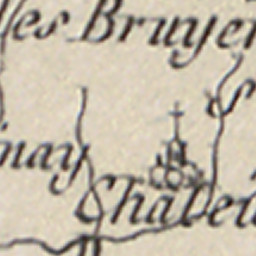 les Bruyer
nay
Chabeu